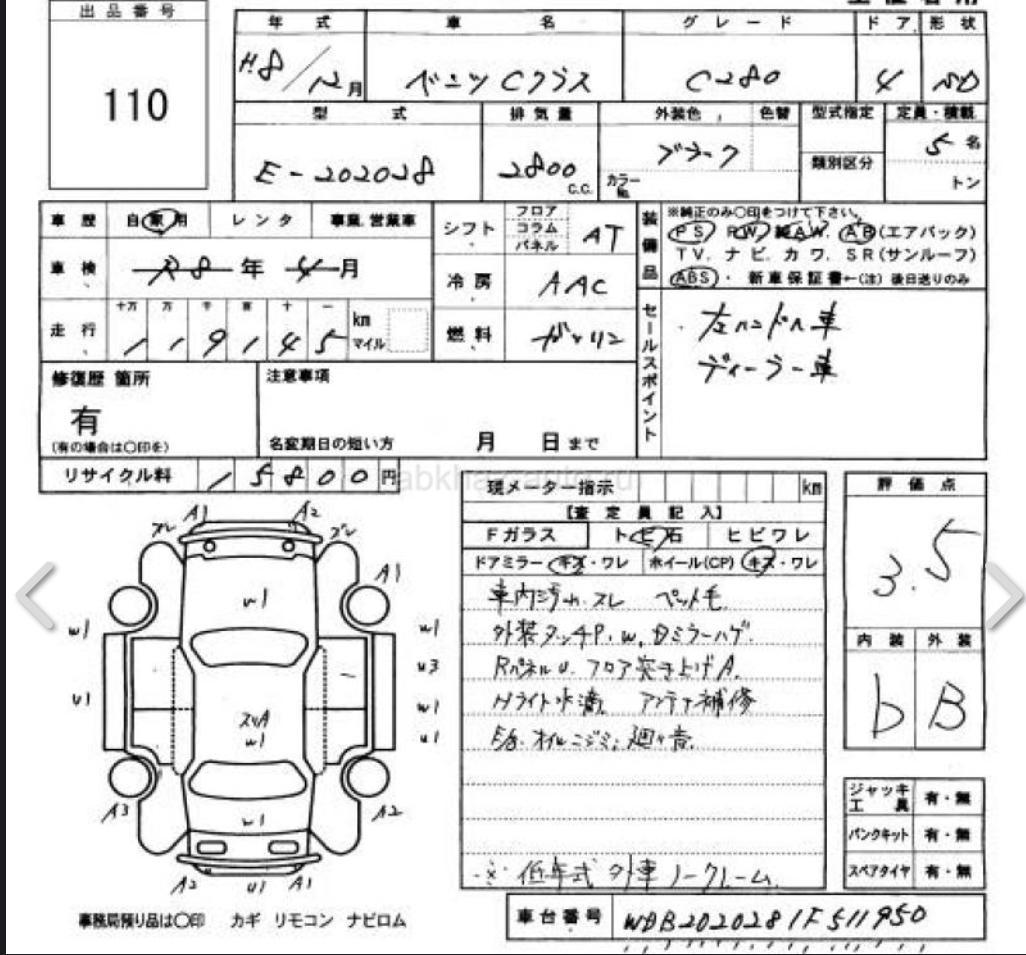 出品番号
110
年式 車名 グレード ドア 形状
H.8/12月 ベンツCクラス C280 4 SD
型式 排気量 外装色 色替 型式指定 定員・積載
E-202028 2800 C.C. ブラック カラーNo. 類別区分 5名 トン
車歴 自家用 レンタ 事業.営業車
車検 R8年 4月
走行 十万 万 千 百 十 一
1 1 9 1 4 5 km マイル
シフト フロア コラム パネル AT
冷房 AAC
燃料 ガソリン
装備品
※純正のみ〇印をつけて下さい。
PS PW AW. AB(エアバック)
TV. ナビ. カワ. SR(サンルーフ)
ABS・ 新車保証書←(注) 後日送りのみ
セールスポイント
・左ハンドル車
ディーラー車
修復歴 箇所
有
(有の場合は〇印を)
注意事項
名変期日の短い方 月 日まで
リサイクル料 15800円
現メーター指示 km
【査定員記入】
Fガラス トビ石 ヒビワレ
ドアミラー キズ・ワレ ホイール(CP) キズ・ワレ
車内汚れ.スレ ペット毛.
外装タッチP.w. Dミラーハゲ.
Rパネルu. フロア突き上げA.
Hライト水滴 アンテナ補修
E/g.オイルニジミ;廻り音.
※低年式外車ノークレーム
評価点
3.5
内装 外装
b B
ジャッキ工具 有・無
パンクキット 有・無
スペアタイヤ 有・無
A1 A2
A1
w1
w1 w1
u3
u1 w1
w1 u1
A3 A2
w1
A2 u1 A1
事務局預り品は〇印 カギ リモコン ナビロム
車台番号 WDB2020281F511950